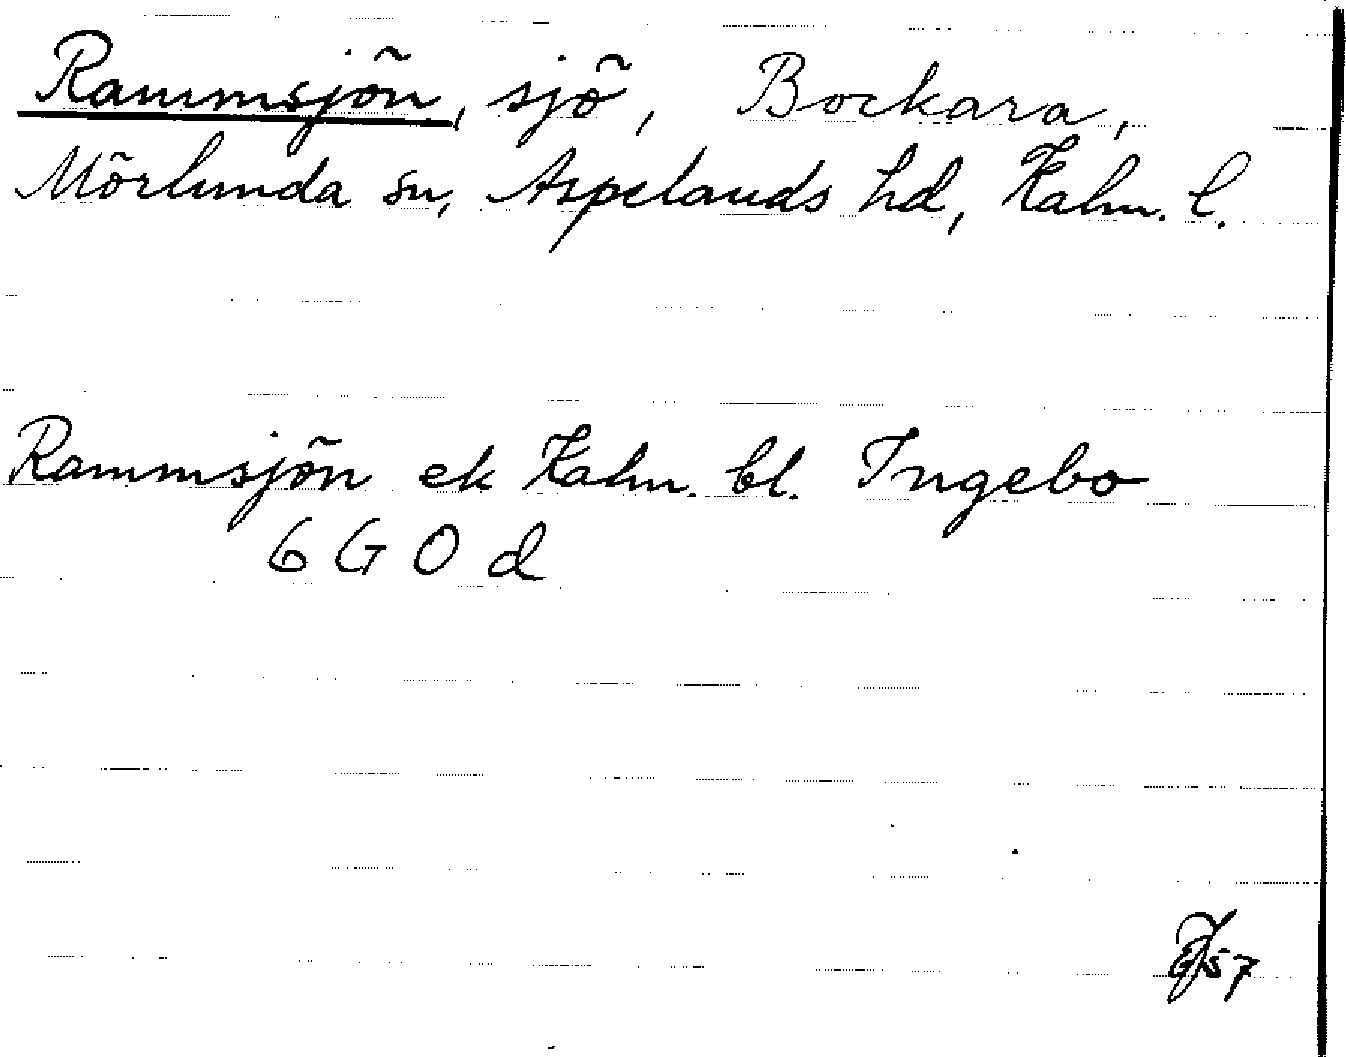 Rammsjön, sjö, Bockara,
Mörlunda sn, Aspelands hd, Kalm. l.
Rammsjön ek Kalm. bl. Ingebo
6 G O d
57